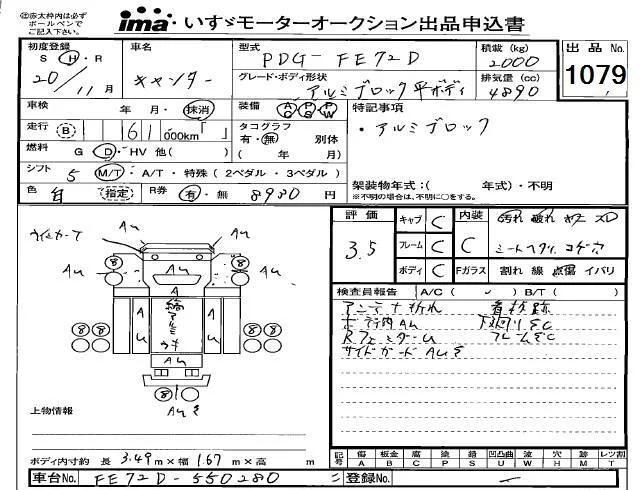 ㊟赤太枠内は必ず
ボールペンで
ご記入下さい。
ima・いすゞモーターオークション出品申込書
初度登録 S H・R 20/11月
車名 キャンター
型式 PDG-FE72D
積載 (kg) 2000
出品 No. 1079
グレード・ボディ形状 アルミブロック平ボディ
排気量 (cc) 4890
車検 年・月・抹消
装備 AC PS PW
特記事項
・アルミブロック
走行 B 61 000km「 」
タコグラフ 有・無 別体
( 年 月)
燃料 G D・HV 他( )
シフト 5 M/T・A/T・特殊(2ペダル・3ペダル)
色 白 指定 R券 有・無 8980円
架装物年式:( 年式)・不明
※不明の場合は、不明に○をする。
評価 3.5
キャブ C
フレーム C
ボディ C
内装 C
汚れ 破れ ヤケ スレ
シートヘタリ コゲ穴
Fガラス 割れ 線 点傷 イバリ
検査員報告 A/C( ✓ ) B/T( )
アンテナ折れ 看板跡
ボディ内AU 下回りSC
R.フェンダーU フレームSC
サイドガードAU
ウィンカーア AU
AU
AU
8 8
A U
A U
縞アルミ
ウキ
8 8 8 8
AU
8
AU
上物情報
ボディ内寸約 長 3.49m×幅 1.67m×高 m
記号 傷 A 板金 B 腐 C 補 P 塗 S 錆 S 凹凸曲 U 波 W 欠 X 穴 H 跡 M レツ割 T
車台No. FE72D-550280
登録No. ー